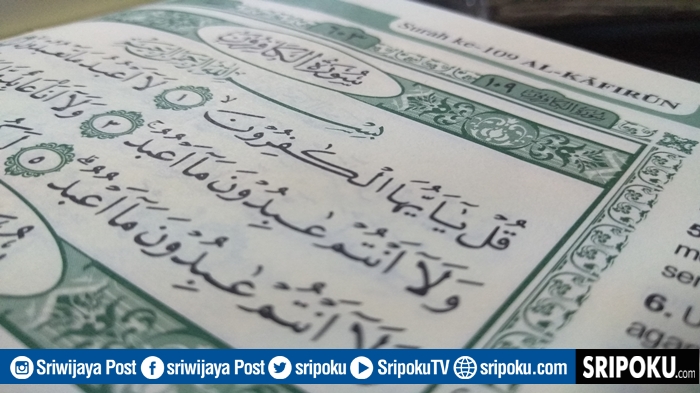 Surah ke-109 AL-KĀFIRŪN
٦٠٣
١٠٩
سُورَةُ الْكٰفِرُوْنَ
بِسْـمِ اللّٰهِ الرَّحْمٰنِ الرَّحِيْمِ
قُلْ يٰٓاَيُّهَا الْكٰفِرُوْنَ ١ لَآ اَعْبُدُ مَا تَعْبُدُوْنَ
وَلَآ اَنْتُمْ عٰبِدُوْنَ مَآ اَعْبُدُ ٣ وَلَآ اَنَا۠ عَابِدٌ
وَلَآ اَنْتُمْ عٰبِدُوْنَ مَآ اَعْبُدُ ٥
5
6. U
Sriwijaya Post sriwijaya Post sripoku SripokuTV sripoku.com SRIPOKU.com